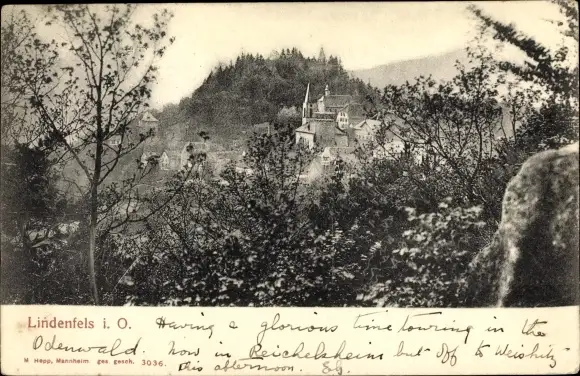 Lindenfels i. O.
Having a glorious time touring in the
Odenwald. now in Reichelsheim but off to
this afternoon.
M Hepp, Mannheim ges gesch. 3036.